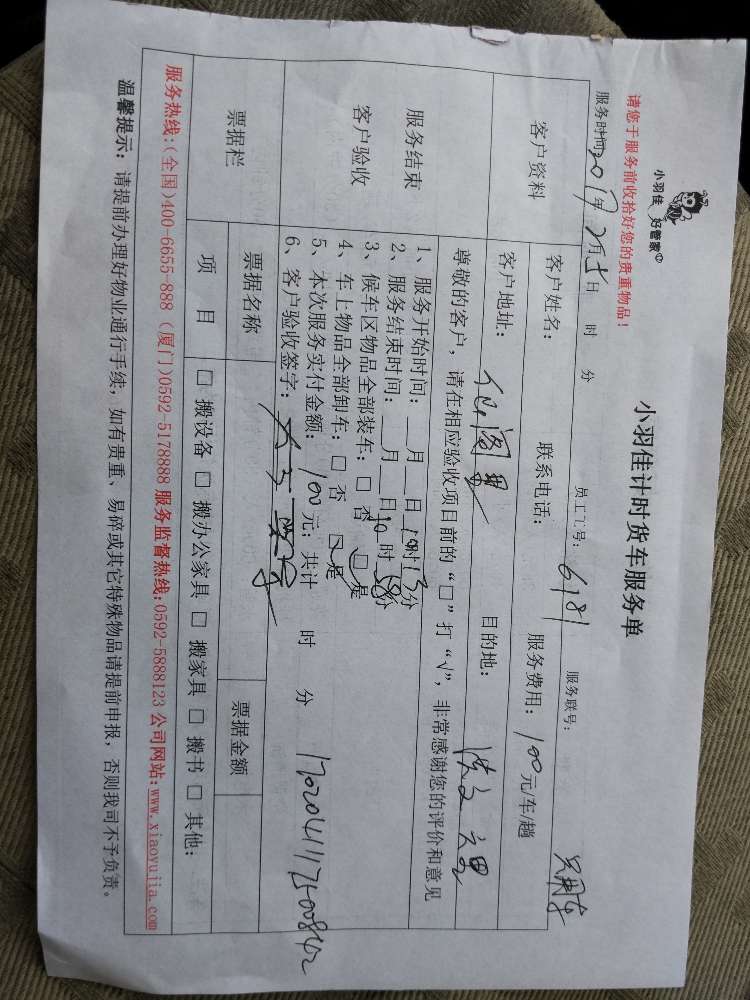 小羽佳 好管家
小羽佳计时货车服务单
请您于服务前收拾好您的贵重物品！
服务时间 2017年 2月5日 时 分 员工工号： 6181 服务联号：
客户资料
客户姓名： 联系电话： 服务费用： 100元/车/趟
客户地址： 目的地：
尊敬的客户，请在相应验收项目前的“□”打“√”，非常感谢您的评价和意见
服务结束
客户验收
1、服务开始时间： 月 日 时13分
2、服务结束时间： 月 日10时58分
3、候车区物品全部装车：□ 否 □ 是
4、车上物品全部卸车：□ 否 □ 是
5、本次服务实付金额： 100元；共计 时 分 17020411750842
6、客户验收签字：
票据栏
票据名称 票据金额
项 目 □ 搬设备 □ 搬办公家具 □ 搬家具 □ 搬书 □ 其他：
服务热线：（全国）400-6655-888（厦门）0592-5178888 服务监督热线：0592-5888123 公司网站：www.xiaoyujia.com
温馨提示：请提前办理好物业通行手续，如有贵重、易碎或其它特殊物品请提前申报，否则我司不予负责。